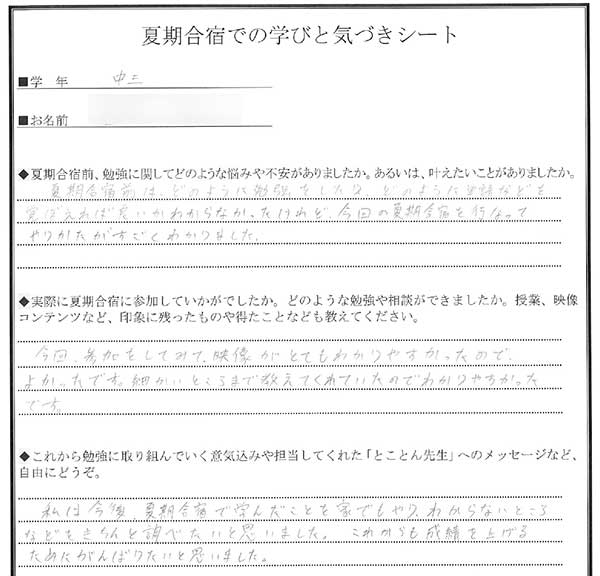 夏期合宿での学びと気づきシート
■学 年 中三
■お名前
◆夏期合宿前、勉強に関してどのような悩みや不安がありましたか。あるいは、叶えたいことがありましたか。
夏期合宿前は、どのように勉強をしたり、どのように単語などを
覚ぼえれば良いかわからなかったけれど、今回の夏期合宿を行なって
やりかたがすごくわかりました。
◆実際に夏期合宿に参加していかがでしたか。どのような勉強や相談ができましたか。授業、映像
コンテンツなど、印象に残ったものや得たことなども教えてください。
今回、参加をしてみて、映像がとてもわかりやすかったので、
よかったです。細かいところまで教えてくれていたのでわかりやすかった
です。
◆これから勉強に取り組んでいく意気込みや担当してくれた「とことん先生」へのメッセージなど、
自由にどうぞ。
私は今後、夏期合宿で学んだことを家でもやり、わからないところ
などをきちんと調べたいと思いました。 これからも成績を上げる
ためにがんばりたいと思いました。